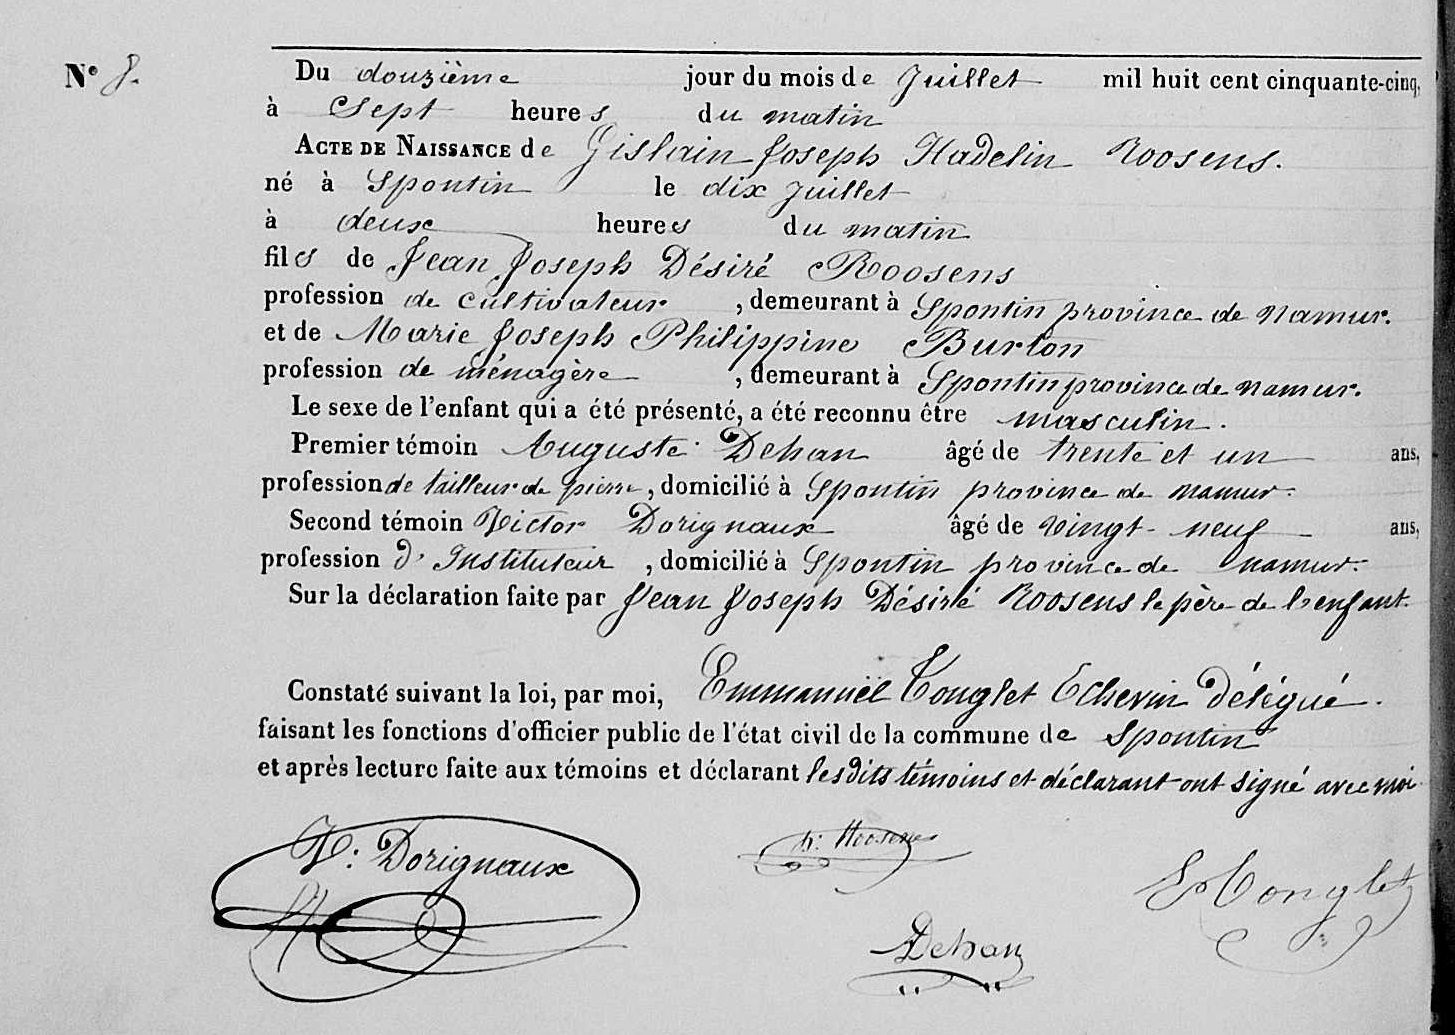 N° 8.
Du douzième jour du mois de Juillet mil huit cent cinquante-cinq,
à Sept heures du matin
ACTE DE NAISSANCE de Gislain Joseph Hadelin Roosens.
né à Spontin le dix Juillet
à deux heures du matin
fils de Jean Joseph Désiré Roosens
profession de cultivateur, demeurant à Spontin province de Namur.
et de Marie Joseph Philippine Burton
profession de ménagère, demeurant à Spontin province de Namur.
Le sexe de l'enfant qui a été présenté, a été reconnu être masculin.
Premier témoin Auguste Dehan âgé de trente et un ans,
profession de tailleur de pierre, domicilié à Spontin province de Namur.
Second témoin Victor Dorignaux âgé de vingt-neuf ans,
profession d'Instituteur, domicilié à Spontin province de Namur.
Sur la déclaration faite par Jean Joseph Désiré Roosens le père de l'enfant.
Constaté suivant la loi, par moi, Emmanuël Tonglet Echevin Délégué.
faisant les fonctions d'officier public de l'état civil de la commune de Spontin
et après lecture faite aux témoins et déclarant lesdits témoins et déclarant ont signé avec moi.
V: Dorignaux
D: Roosens
E Tonglet
Dehan